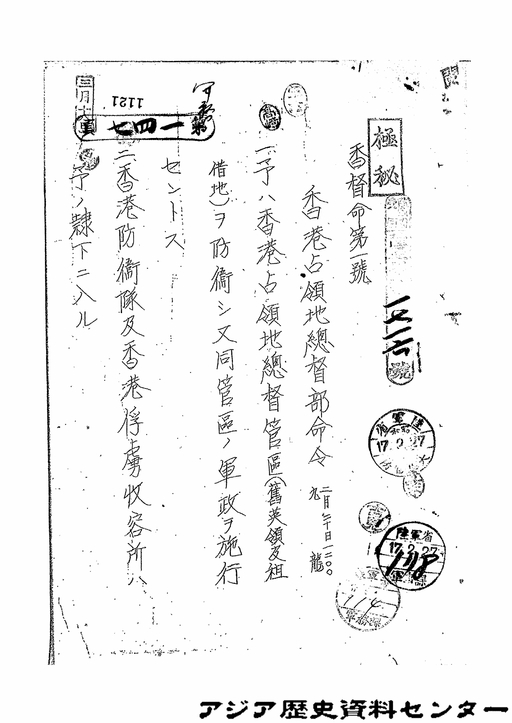 極秘
香督命第一號
香港占領地總督部命令 二月二十日一二〇〇 九龍
一、予ハ香港占領地總督管區(舊英領及租
借地)ヲ防衞シ又同管區ノ軍政ヲ施行
セントス
二、香港防衞隊及香港俘虜收容所ハ
予ノ隷下ニ入ル
1121
陸軍省
17.2.27
陸軍省
17.2.27
114
アジア歴史資料センター